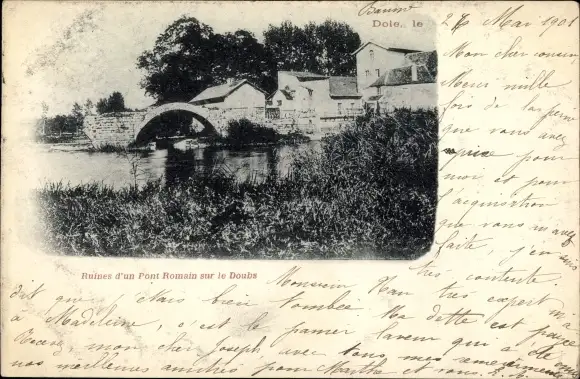 Dole, le
27 Mai 1901
Mon cher cousin
Merci mille
fois de la peine
que vous avez
prise pour
moi et pour
l'acquisition
que vous m'avez
faite, j'en suis
très contente.
Ruines d'un Pont Romain sur le Doubs
Monsieur très expert m'a
dit que j'étais bien tombée. Ma dette est payée
à Madeleine, c'est le premier
mon cher Joseph, avec tous mes remerciements
nos meilleures amitiés pour Marthe et vous.